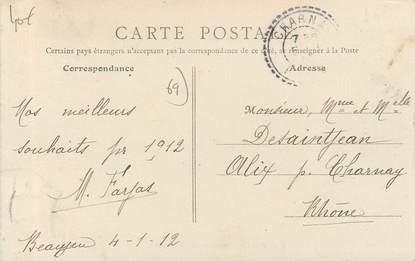 40€
CARTE POSTALE
Certains pays étrangers n'acceptent pas la correspondance de ce côté, se renseigner à la Poste
Correspondance
Adresse
CHARNAY
69
Nos meilleurs
souhaits pr 1912
M. Farjas
4-1-12
Monsieur, Mme et Melle
Desaintjean
Alix p. Charnay
Rhône